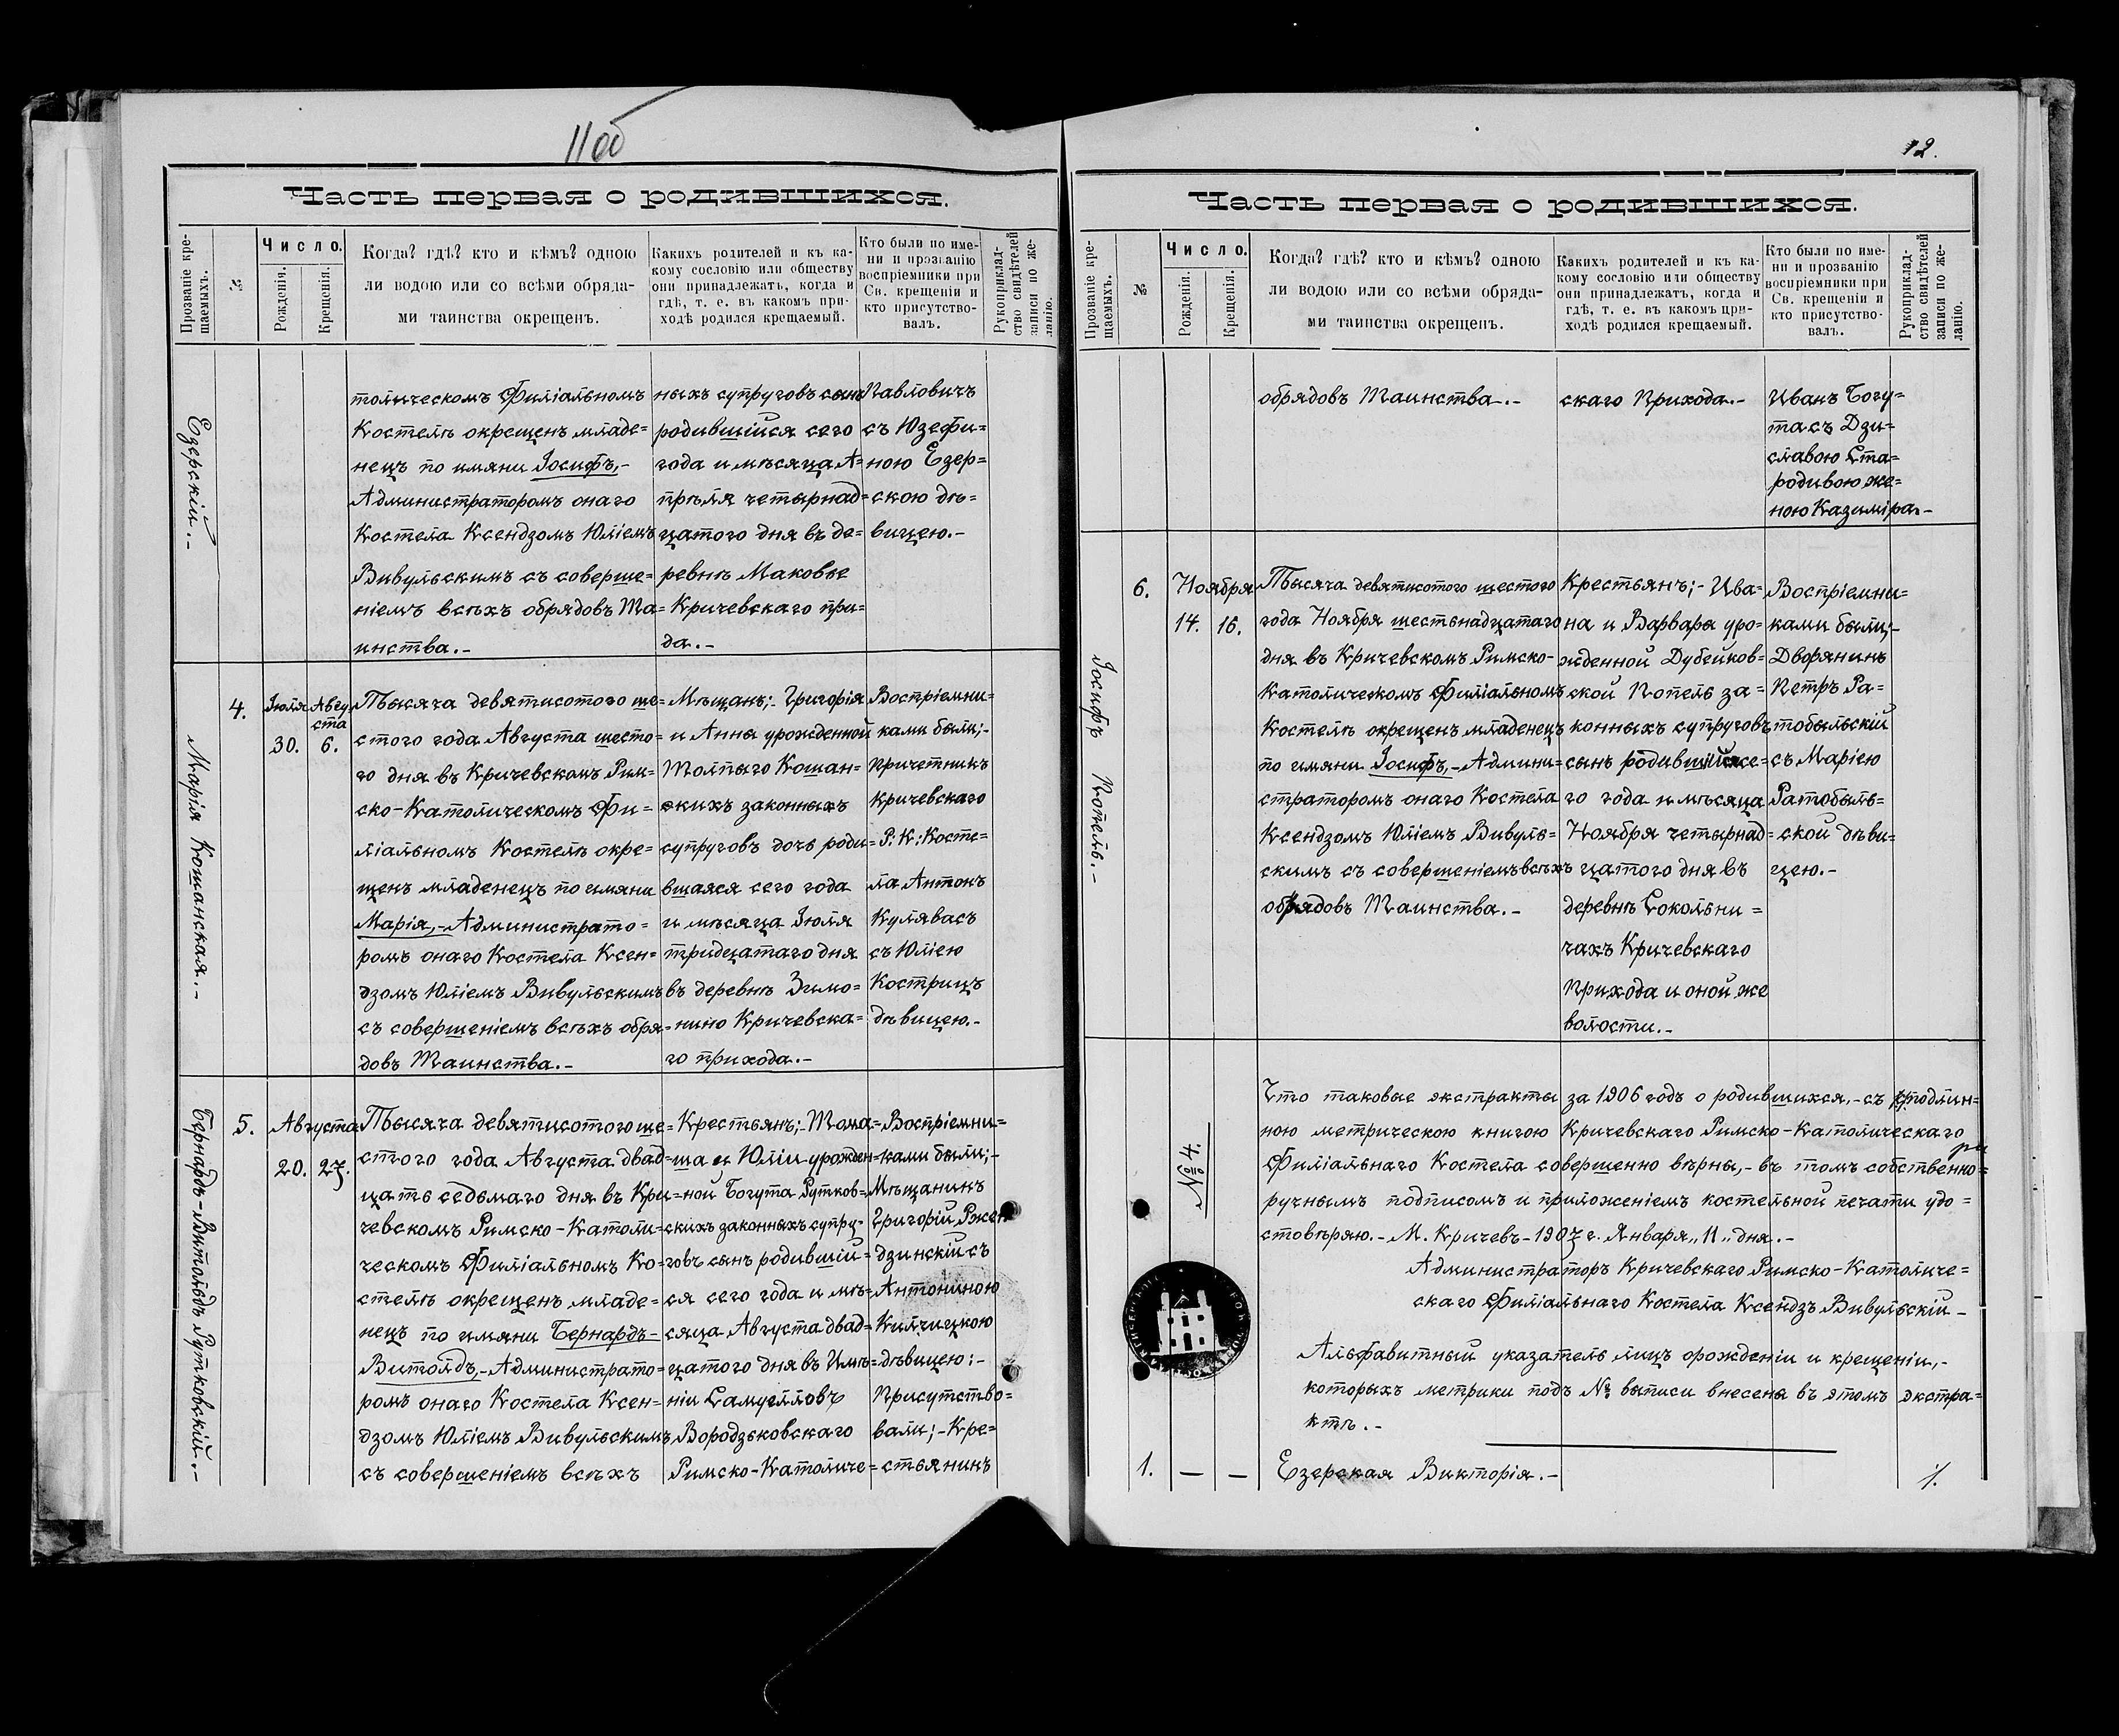 11об
Часть первая о родившихся.
Прозваніе кре-
щаемыхъ.
№
Число.
Рожденія.
Крещенія.
Когда? гдѣ? кто и кѣмъ? одною
ли водою или со всѣми обряда-
ми таинства окрещенъ.
Какихъ родителей и къ ка-
кому сословію или обществу
они принадлежатъ, когда и
гдѣ, т. е. въ какомъ при-
ходѣ родился крещаемый.
Кто были по име-
ни и прозванію
воспріемники при
Св. крещеніи и
кто присутство-
валъ.
Рукоприклад-
ство свидѣтелей
записи по же-
ланію.
Езерскій.-
толическомъ Филіальномъ
Костелѣ окрещенъ младе=
нецъ по имяни Іосифъ,-
Администраторомъ онаго
Костела Ксендзомъ Юліемъ
Вивульскимъ съ соверше=
ніемъ всѣхъ обрядовъ Та=
инства.-
ныхъ супруговъ сынъ
родившійся сего
года и мѣсяца А=
прѣля четырнад=
цатого дня въ де=
ревнѣ Маковье
Кричевскаго при=
да.-
Павловичъ
съ Юзефи=
ною Езер=
скою дѣ=
вицею.-
Марія Кошанская.-
4.
Іюля
30.
Авгу
ста
6.
Тысяча девятисотого ше=
стого года Августа шесто=
го дня въ Кричевскомъ Рим=
ско-Католическомъ Фи=
ліальномъ Костелѣ окре=
щенъ младенецъ по имяни
Марія,-Администрато=
ромъ онаго Костела Ксен=
дзомъ Юліемъ Вивульскимъ
съ совершеніемъ всѣхъ обря=
довъ Таинства.-
Мѣщанъ;-Григорія
и Анны урожденной
Толпыго Кошан=
скихъ законныхъ
супруговъ дочь роди=
вшаяся сего года
и мѣсяца Іюля
тридцатаго дня
въ деревнѣ Зимо=
нино Кричевска=
го прихода.-
Воспріемни=
ками были;-
Причетникъ
Кричевскаго
Р: К: Косте=
ла Антонъ
Кулявасъ
съ Юліею
Кострицъ
дѣвицею.-
Бернардъ-Витольдъ Рутковскій.-
5.
Августа
20. 27.
Тысяча девятисотого ше=
стого года Августа двад=
цать седьмаго дня въ Кри=
чевскомъ Римско-Католи=
ческомъ Филіальномъ Ко=
стелѣ окрещенъ младе=
нецъ по имяни Бернардъ-
Витолдъ,-Администрато=
ромъ онаго Костела Ксен=
дзомъ Юліемъ Вивульскимъ
съ совершеніемъ всѣхъ
Крестьянъ;-Тома=
ша и Юліи урожден=
ной Богута Рутков=
скихъ законныхъ супру-
говъ сынъ родившій=
ся сего года и мѣ=
сяца Августа двад=
цатого дня въ Имѣ=
ніи Самуелловъ
Бородзьковскаго
Римско-Католиче=
Воспріемни=
ками были;-
Мѣщанинъ
Григорій Ржен
дзинскій съ
Антониною
Килчицкою
дѣвицею:-
Присутство=
вали;-Кре=
стьянинъ
12.
Часть первая о родившихся.
Прозваніе кре-
щаемыхъ.
№
Число.
Рожденія.
Крещенія.
Когда? гдѣ? кто и кѣмъ? одною
ли водою или со всѣми обряда-
ми таинства окрещенъ.
Какихъ родителей и къ ка-
кому сословію или обществу
они принадлежатъ, когда и
гдѣ, т. е. въ какомъ при-
ходѣ родился крещаемый.
Кто были по име-
ни и прозванію
воспріемники при
Св. крещеніи и
кто присутство-
валъ.
Рукоприклад-
ство свидѣтелей
записи по же-
ланію.
обрядовъ Таинства.-
скаго Прихода.-
Иванъ Богу=
та съ Дзи=
славою Ста=
родивою же=
ною Казиміра.-
Іосифъ Попель.-
6.
Ноября
14. 16.
Тысяча девятисотого шестого
года Ноября шестьнадцатаго
дня въ Кричевскомъ Римско-
Католическомъ Филіальномъ
Костелѣ окрещенъ младенецъ
по имяни Іосифъ,-Админи=
страторомъ онаго Костела
Ксендзомъ Юліемъ Вивуль=
скимъ съ совершеніемъ всѣхъ
обрядовъ Таинства.-
Крестьянъ;-Ива=
на и Варвары уро=
жденной Дубейков=
ской Попель за=
конныхъ супруговъ
сынъ родившійся се=
го года и мѣсяца
Ноября четырнад=
цатого дня въ
деревнѣ Сокольни=
чахъ Кричевскаго
Прихода и оной же
волости.-
Воспріемни=
ками были;-
Дворянинъ
Петръ Ра=
тобыльскій
съ Маріею
Ратобыль=
ской дѣви=
цею.-
№ 4.
Что таковые экстракты за 1906 годъ о родившихся,-съ подлин=
ною метрическою книгою Кричевскаго Римско-Католическаго
Филіальнаго Костела совершенно вѣрны,-въ томъ собственно=
ручнымъ подписомъ и приложеніемъ костельной печати удо=
стовѣряю.-М. Кричевъ-1907 г. Января „11„ дня.-
Администраторъ Кричевскаго Римско-Католиче=
скаго Филіальнаго Костела Ксендзъ Вивульскій-
Альфавитный указатель лицъ орожденіи и крещеніи,-
которыхъ метрики подъ № выписи внесены въ этомъ экстра=
ктѣ.-
1. — — Езерская Викторія.- 1.